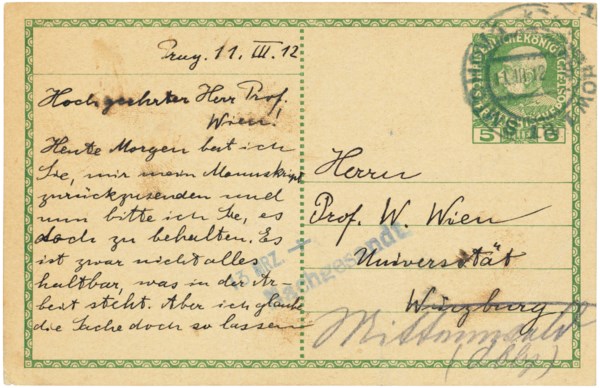 Prag. 11. III. 12
Hochgeehrter Herr Prof.
Wien!
Heute Morgen bat ich
Sie, mir mein Manuskript
zurückzusenden und
nun bitte ich Sie, es
doch zu behalten. Es
ist zwar nicht alles
haltbar, was in der Ar-
beit steht. Aber ich glaube
die Sache doch so lassen
Herrn
Prof. W. Wien
Universität
Würzburg
Mittenwald
13 MRZ
Nachgesandt
5